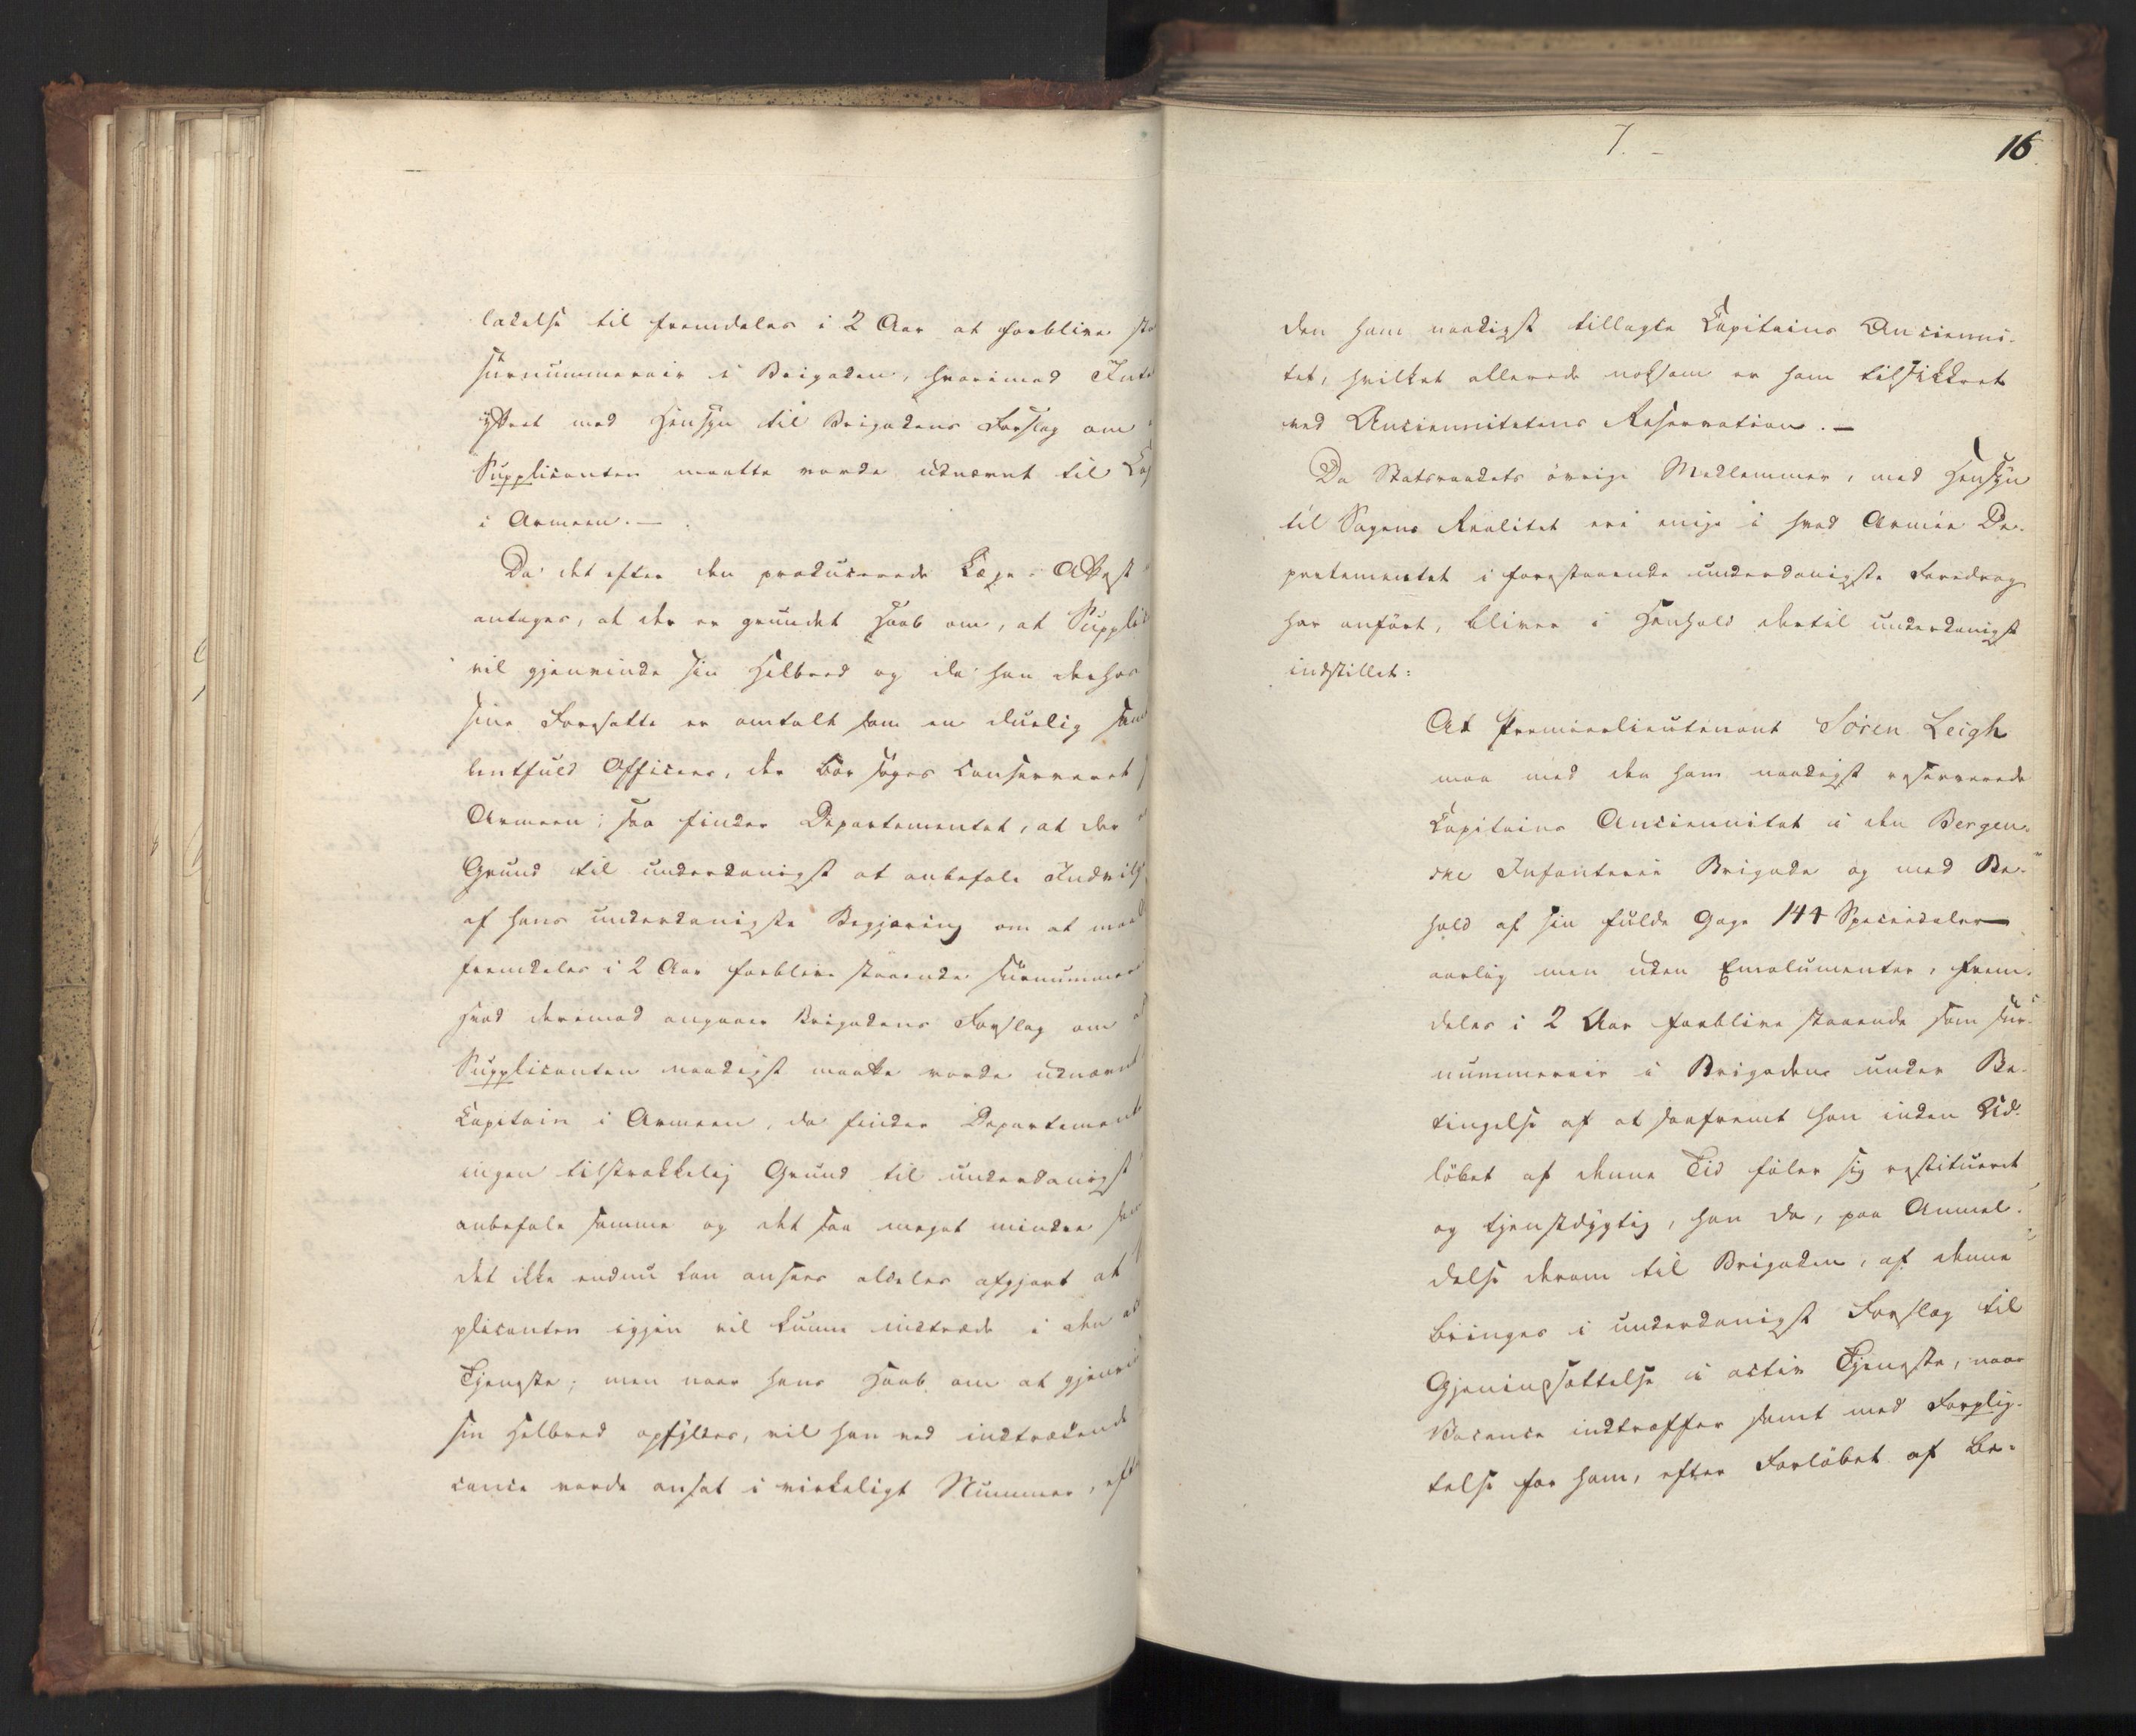 ladelse til fremdeles i 2 Aar at forblive sta
surnummerair i Brigaden, hvorimod Inte
yttret med Hensyn til Brigadens Forslag om
Supplicanten maatte vorde udnævnt til Cap
i Armeen. —
Da det efter den producerede Læge-Attest
antages, at der er grundet Haab om, at Supplic
vil gjenvinde sin Helbred og da han derhos
sine Foresatte er omtalt som en duelig
lentfuld Officeer, der bør søges conserveret
Armeen; saa finder Departementet, at der
Grund til underdanigst at anbefale Indvilg
af hans underdanigste Begjæring om at maa
fremdeles i 2 Aar forblive staaende surnummer
hvad derimod angaaer Brigadens Forslag om
Supplicanten naadigst maatte vorde udnævnt
Capitain i Armeen, da finder Departement
ingen tilstrækkelig Grund til underdanigst
anbefale samme og det saa meget mindre som
det ikke endnu kan ansees aldeles afgjort at
plicanten igjen vil kunne indtræde i den
Tjeneste; men naar hans Haab om at gjenvi
sin Helbred opfyldes, vil han ved indtrædende
cance vorde ansat i virkeligt Nummer, eft
7. -
16.
den ham naadigst tillagte Capitains Ancienni-
tet, hvilket allerede noksom er ham tilsikkret
ved Anciennitetens Reservation. —
Da Statsraadets øvrige Medlemmer, med Hensyn
til Sagens Realitet ere enige i hvad Armée De-
pretementet i forestaaende underdanigste Foredrag
har anført, bliver i Henhold dertil underdanigst
indstillet:
At Premierelieutenant Sören Leigh
maa med den ham naadigst reserverede
Capitains Anciennitet i den Bergen-
ske Infanterie Brigade og med Be-
hold af sin fulde Gage 144 Speciedaler
aarlig men uden Emolumenter, frem-
deles i 2 Aar forblive staaende som sur-
nummerair i Brigaden under Be-
tingelse af at saafremt han inden Ud-
løbet af denne Tid føler sig restitueret
og tjenstdygtig, han da, paa Anmel-
delse derom til Brigaden, af denne
bringes i underdanigst Forslag til
Gjenindsættelse i activ Tjeneste, naar
Vacance indtræffer samt med Forplig-
telse for ham, efter Forløbet af be-